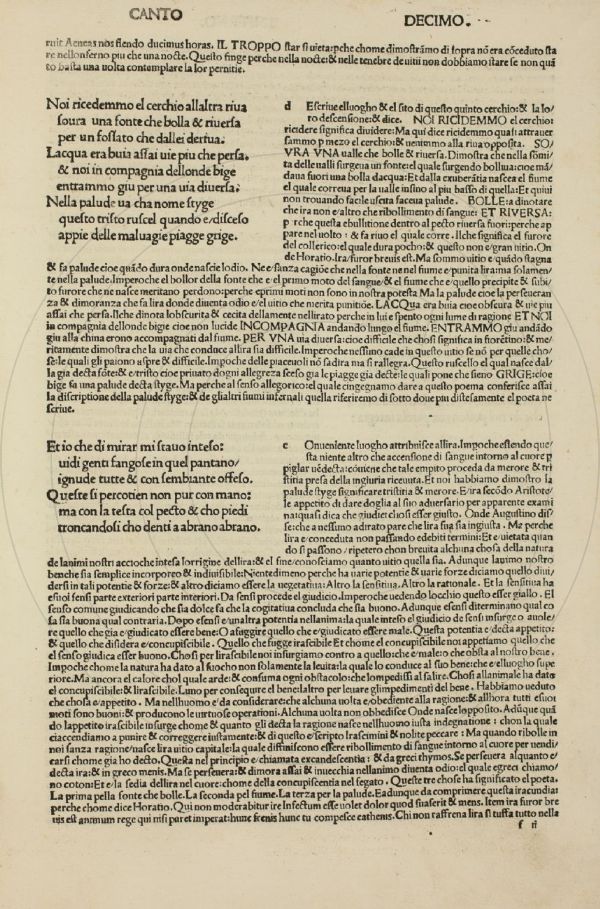 CANTO DECIMO.
ruit Aeneas nos flendo ducimus horas. IL TROPPO star si uieta: pche chome dimostrãmo di sopra nõ era cõceduto sta
re nellonferno piu che una nocte. Questo finge perche nella nocte: & nelle tenebre de uitii non dobbiamo stare se non quã
to basta una uolta contemplare la lor pernitie.
Noi ricedemmo el cerchio allaltra riua
soura una fonte che bolla & riuersa
per un fossato che dallei deriua.
Lacqua era buia assai uie piu che persa.
& noi in compagnia dellonde bige
entrammo giu per una uia diuersa.
Nella palude ua cha nome styge
questo tristo ruscel quando e/disceso
appie delle maluagie piagge grige.
d Escriue elluogho & el sito di questo quinto cerchio: & la lo/
ro descensione: & dice. NOI RICIDEMMO el cerchio:
ricidere significa diuidere: Ma qui dice ricidemmo quasi attrauer
sammo p mezo el cerchio: & uenimmo alla riua opposita. SO/
VRA VNA ualle che bolle & riuersa. Dimostra che nella sõmi
ta delle ualli surgena un fonte: el quale surgendo bolliua: cioe mã
daua fuori una bolla dacqua: Et dalla exuberãtia nascea el fiume
el quale correua per la ualle insino al piu basso di quella: Et quiui
non trouando facile uscita faceua palude. BOLLE: a dinotare
che ira non e/altro che ribollimento di sangue: ET RIVERSA:
pche questa ebullitione dentro al pecto riuersa fuori: perche ap
pare nel uolto: & fa riuo el quale corre. Ilche significa el furore
del collerico: el quale dura pocho: & questo non e/gran uitio. On
de Horatio. Ira furor breuis est. Ma sommo uitio e/quãdo stagna
& fa palude cioe quãdo dura onde nasce lodio. Ne e/sanza cagiõe che nella fonte ne nel fiume e/punita lira: ma solamen/
te nella palude. Imperoche el bollor della fonte che e/el primo moto del sangue/& el fiume che e/quello precipite & subi/
to furore che nasce meritano perdono: perche e primi moti non sono in nostra potesta Ma la palude cioe la perseueran
za & dimoranza che fa lira donde diuenta odio e/el uitio che merita punitione. LACQua era buia cioe obscura & uie piu
assai che persa. Ilche dinota lobscurita & cecita della mente nellirato perche in lui e spento ogni lume di ragione ET NOI
in compagnia dellonde bigie cioe non lucide INCOMPAGNIA andando lungo el fiume. ENTRAMMO giu andãdo
giu alla china erono accompagnati dal fiume. PER VNA uia diuersa: cioe difficile che chosi significa in fiorẽtino: & me/
ritamente dimostra che la uia che conduce allira sia difficile. Imperoche nessuno cade in questo uitio se nõ per quelle cho/
se: le quali gli paiono aspre & difficile. Impoche delle piaceuoli nõ sadira ma si rallegra. Questo ruscello el quale nasce dal/
la gia decta fõte: & e/tristo cioe priuato dogni allegreza sceso gia le piagge gia decte: le quali pone che sieno GRIGE: cioe
bige fa una palude decta styge. Ma perche al senso allegorico: el quale cingegnamo dare a questo poema conferisce assai
la discriptione della palude styge: & de gli altri fiumi infernali quella riferiremo di sotto doue piu distesamente el poeta ne
scriue.
Et io che di mirar mi stauo inteso:
uidi genti fangose in quel pantano/
ignude tutte & con sembiante offeso.
Queste si percotien non pur con mano:
ma con la testa col pecto & cho piedi
troncandosi cho denti a brano a brano.
c Onueniente luogho attribuisce allira. Impoche essendo que/
sta niente altro che accensione di sangue intorno al cuore p
pigliar uẽdecta: cõuiene che tale empito proceda da merore & tri
stitia presa della ingiuria riceuuta. Et noi habbiamo dimostro la
palude styge significare tristitia & merore. E/ira secõdo Aristote/
le appetito di dare doglia al suo aduersario per apparente exami
na: quasi dica che giudiei chosi esser giusto. Onde Augustino dis/
se: che a nessuno adirato pare che lira sua sia ingiusta. Ma perche
lira e/conceduta non passando edebiti termini: Et e/uietata quan
do si passono/ripetero chon breuita alchuna chosa della natura
de lanimi nostri accioche intesa lorrigine dellira: & el fine/conosciamo quanto uitio quella sia. Adunque lauimo nostro
benche sia semplice incorporeo & indiuisibile: Nientedimeno perche ha uarie potentie & uarie forze diciamo quello diui/
dersi in tali potentie & forze: & altro diciamo essere la uegetatiua: Altro la sensitiua. Altro la rationale. Et la sensitiua ha
esuoi sensi parte exteriori parte interiori. Da sensi procede el giudicio. Imperoche uedendo locchio questo esser giallo. El
senso comune giudicando che sia dolce fa che la cogitatiua concluda che sia buono. Adunque esensi diterminano qual co
sa sia buona qual contraria. Dopo esensi e/unaltra potentia nellanima: la quale inteso el giudicio de sensi insurge o auole/
re quello che gia e/giudicato essere bene: O a fuggire quello che e/giudicato essere male. Questa potentia e/decta appetito:
& quello che disidera e/concupiscibile. Quello che fugge irascibile Et chome el concupiscibile noi appetiamo quello che
el senso giudica esser buono. Chosi per lirascibile noi insurgiamo contro a quello: che e/male: o che obsta al nostro bene.
Impoche chome la natura ha dato al fuocho non solamente la leuita: la quale lo conduce al suo bene: che e/elluogho supe
riore. Ma ancora el calore chol quale arde: & consuma ogni obstacolo: che lompedissi al salire. Chosi allanimale ha dato
el concupiscibile: & lirascibile. Luno per conseguire el bene: laltro per leuare glimpedimenti del bene. Habbiamo ueduto
che chosa e/appetito. Ma nellhuomo e/da considerare: che alchuna uolta e/obediente alla ragione: & allhora tutti esuoi
moti sono buoni: & producono le uirtuose operationi. Alchuna uolta non obbedisce Onde nasce lopposito. Adũque quã
do lappetito irascibile insurge chome & quanto gli decta la ragione nasce nellhuomo iusta indegnatione: chon la quale
ciaccendiamo a punire & correggere iustamente: & di questo e/scripto Irascimini & nolite peccare: Ma quando ribolle in
noi sanza ragione/nasce lira uitio capitale: la quale diffiniscono essere ribollimento di sangue intorno al cuore per uendi/
carsi chome gia ho decto. Questa nel principio e/chiamata excandescentia: & da greci thymos. Se perseuera alquanto e/
decta ira: & in greco menis. Ma se perseuera: & dimora assai & inuecchia nellanimo diuenta odio: el quale egreci chiamo/
no coton: Et e/la sedia dellira nel cuore: chome della concupiscentia nel fegato. Queste tre chose ha significato el poeta.
La prima pella fonte che bolle. La seconda pel fiume. La terza per la palude. Eadunque da comprimere questa iracundia:
perche chome dice Horatio. Qui non moderabitur ire Infectum esse uolet dolor quod suaserit & mens. Item ira furor bre
uis est animum rege qui nisi paret imperat: hunc frenis hunc tu compesce cathenis. Chi non raffrena lira si tuffa tutto nella
f ii